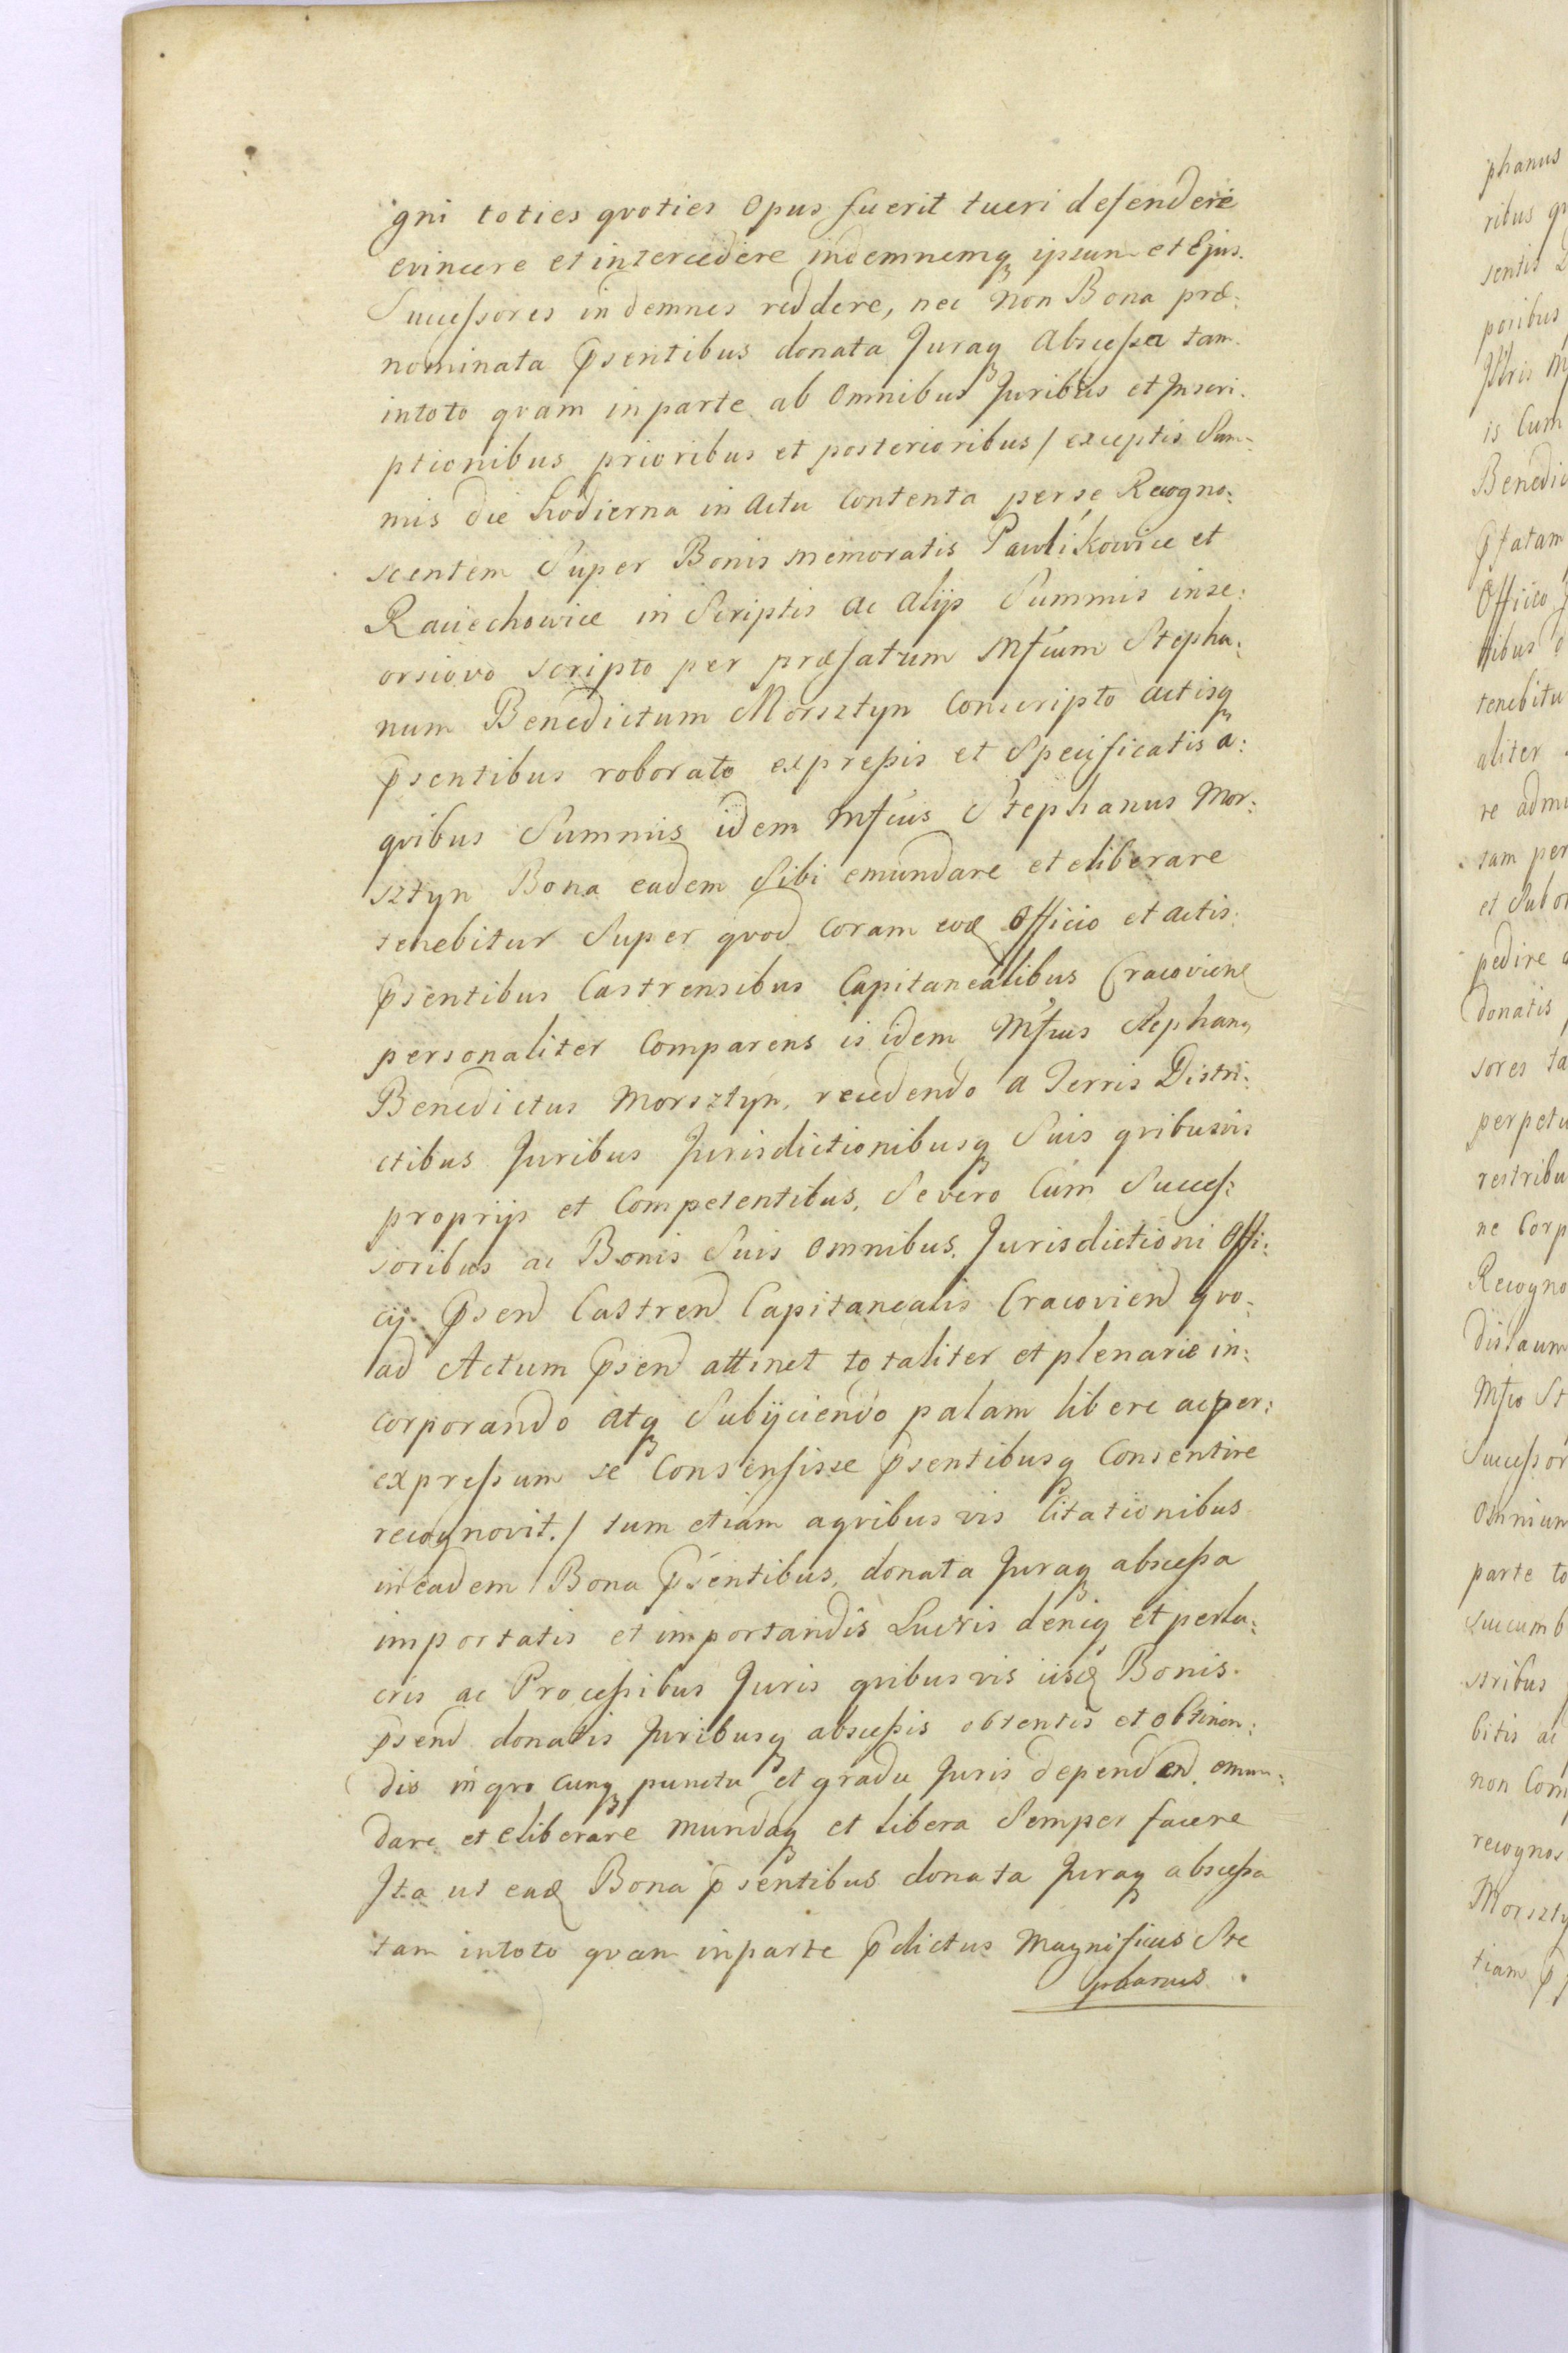 gni toties qvoties Opus fuerit tueri defendere
evincere et intercedere indemnemq ipsum et Ejus.
Successores indemnes reddere, nec non Bona præ:
nominata psentibus donata Juraq Abscessa tam
intoto qvam inparte ab Omnibus Juribus et Inscri:
ptionibus prioribus et posterioribus / exceptis Sum:
mis die hodierna in Actu Contenta per se Recogno:
scentem Super Bonis memoratis Pawlikowice et
Raciechowice in Scriptis ac Alijs Summis inse:
orsiovo scripto per præfatum Mfcum Stepha:
num Benedictum Morsztyn Conscripto actisq
psentibus roborato expressis et Specificatis a:
qvibus Summis idem Mfcus Stephanus Mor:
sztyn Bona eadem Sibi emundare et eliberare
tenebitur Super qvod Coram eod Officio et actis:
psentibus Castrensibus Capitanealibus Cracovien
personaliter Comparens is idem Mfcus Stephang
Benedictus Morsztyn, recedendo a Terris Distri:
ctibus Juribus Jurisdictionibusq Suis qvibusvis
proprijs et Competentibus, Se vero Cum Succes:
soribus ac Bonis Suis Omnibus, Jurisdictioni Offi:
cij psend Castrend Capitanealis Cracoviend qvo:
ad Actum psend attinet totaliter et plenarie in:
corporando Atq Subijciendo palam libere ac per:
expressum se Consensisse psentibusq Consentire
recognovit. / tum etiam aqvibus vis Citationibus
in eadem Bona psentibus, donata Juraq abscessa
importatis et importandis Lucris deniq et perlu:
cris ac Processibus Juris qvibus vis iisd Bonis.
psend donatis Juribusq abscessis obtentis et obtinen:
dis inqvo cunq punctu et gradu Juris dependend. emun:
dare et eliberare mundaq et libera Semper facere
Ita ut ead Bona psentibus donata Juraq abscessa
tam intoto qvam inparte pdictus Magnificus Ste
phanus